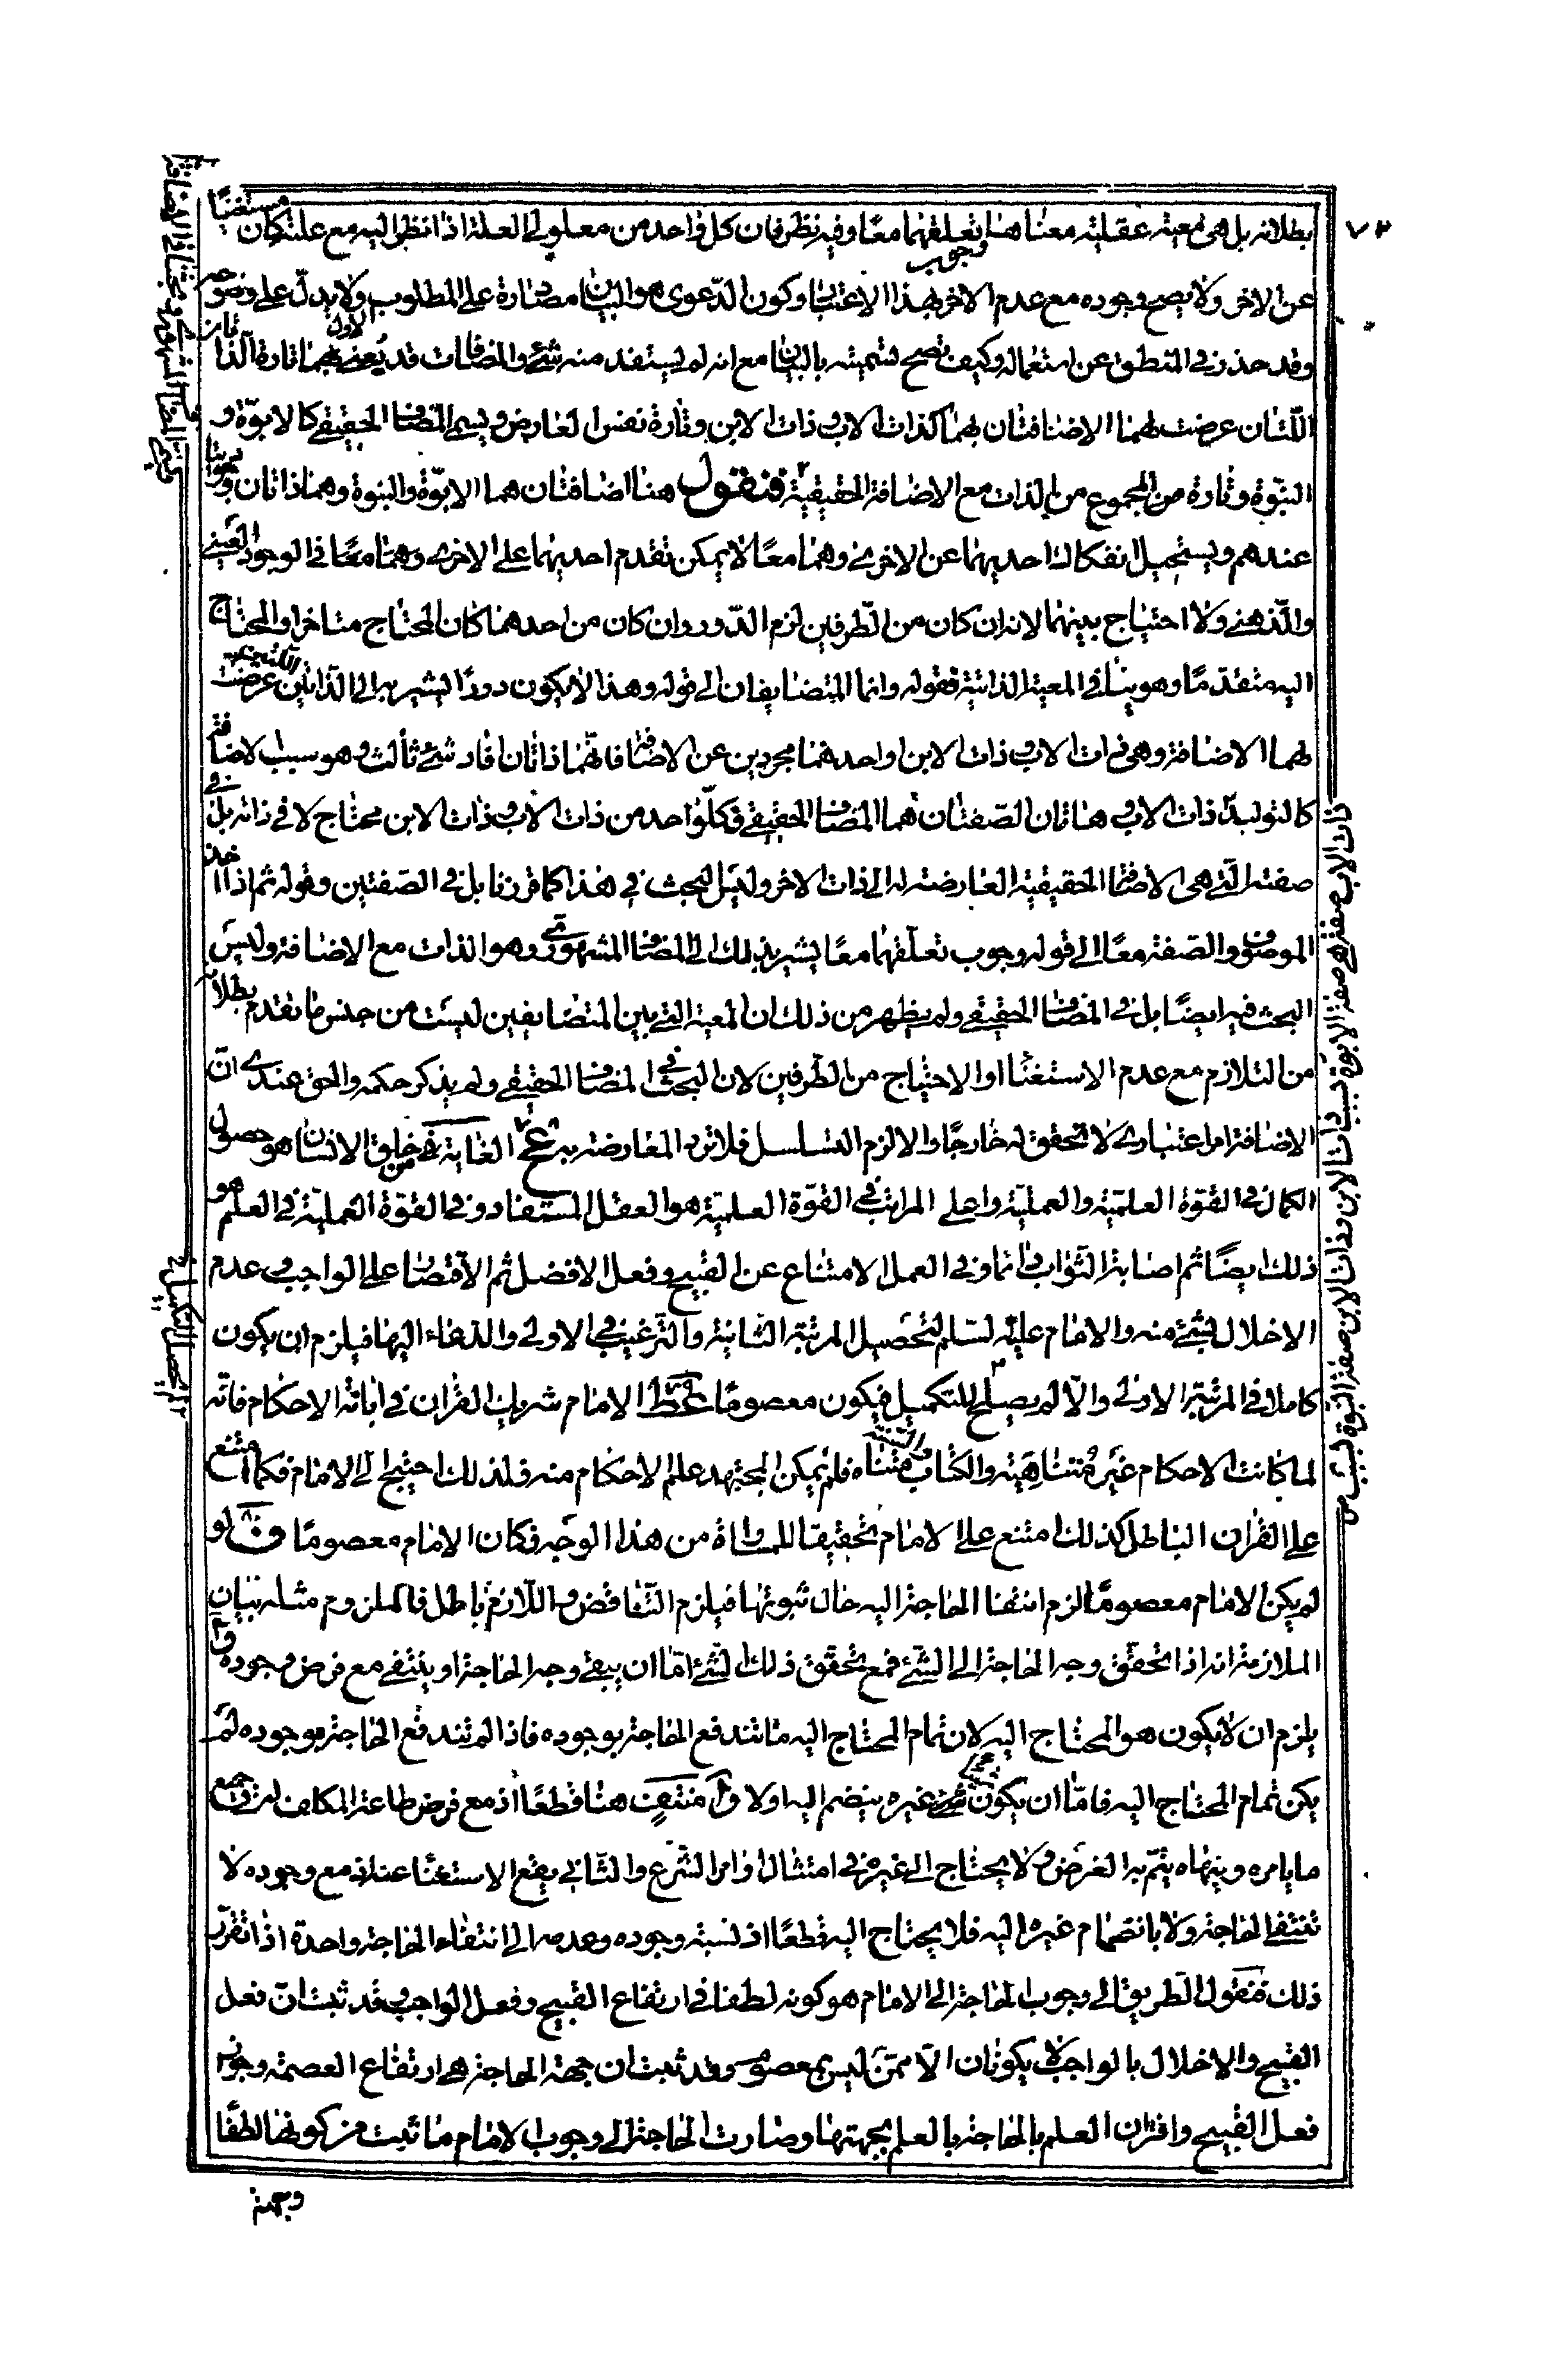 ٧٣
بطلانه بل هى معية عقلية معناها وجوب تعلقهما معا وفيه نظر فان كل واحد من معلولى العلة اذا نظر اليه مع علته كان مستغنيا
عن الاخر ولا يصح وجوده مع عدم الاخر بهذا الاعتبار وكون الدعوى هو البيان مصادرة على المطلوب ولا يدل على وضوحه
وقد حذر فى المنطق عن استعماله وكيف تصح تسميته بالبيان مع انه لم يستفد منه شئ والمضافات قد يعنى بهما تارة الذاتان
اللتان عرضت لهما الاضافتان بهما كذات الاب وذات الابن وتارة نفس العارض ويسمى المضاف الحقيقى كالابوة و
البنوة وتارة من المجموع من الذات مع الاضافة الحقيقية فنقول هنا اضافتان هما الابوة والبنوة وهما ذاتان ثبوتيتان
عندهم ويستحيل انفكاك احديهما عن الاخرى وهما معا لا يمكن تقدم احديهما على الاخرى وهما معا فى الوجود العينى
والذهنى ولا احتياج بينهما لانه ان كان من الطرفين لزم الدور وان كان من احدهما كان المحتاج متاخرا والمحتاج
اليه متقدما وهو ينافى المعية الذاتية فقوله وانما المتضايفان الى قوله وهذا لا يكون دورا ليشير به الى الذاتين اللتين عرضت
لهما الاضافة وهى ذات الاب وذات الابن واحدهما مجردين عن الاضافة فانهما ذاتان افاد شئ ثالث وهو سبب الاضافة
كالتوليد ذات الاب هاتان الصفتان هما المضاف الحقيقى فكل واحد من ذات الاب وذات الابن محتاج لا فى ذاته بل فى
صفته التى هى الاضافة الحقيقية العارضة له الى ذات الاخر وليس البحث فى هذا كما قررنا بل فى الصفتين وقوله ثم اذا اخذ
الموصوف والصفة معا الى قوله وجوب تعلقهما معا يشير بذلك الى المضاف المشهورى وهو الذات مع الاضافة وليس
البحث فيه ايضا بل فى المضاف الحقيقى ولم يظهر من ذلك ان المعية التى بين المتضايفين ليست من جنس ما تقدم بطلانه
من التلازم مع عدم الاستغناء او الاحتياج من الطرفين لان البحث فى المضاف الحقيقى ولم يذكر حكمه والحق عندى ان
الاضافة امر اعتبارى لا تحقق له خارجا والا لزم التسلسل فلا ترد المعارضة به عح الغاية فى خلق الانسان هو حصول
الكمال فى القوة العلمية والعملية واعلى المراتب فى القوة العلمية هو العقل المستفاد وفى القوة العملية فى العلم هو
ذلك ايضا ثم اصابة الثواب دائما وفى العمل الامتناع عن القبيح وفعل الافضل ثم الاقتصار على الواجب وعدم
الاخلال بشئ منه والامام عليه السلم لتحصيل المرتبة الثانية والترغيب فى الاولى والدعاء اليها فيلزم ان يكون
كاملا فى المرتبة الاولى والا لم يصلح للتكميل فيكون معصوما عط الامام شريك القران فى ابانة الاحكام فانه
لما كانت الاحكام غير متناهية والكتاب والسنة متناه فلم يمكن المجتهد علم الاحكام منه فلذلك احتيج الى الامام فكما امتنع
على القران الباطل كذلك امتنع على الامام تحقيقا للمساواة من هذا الوجه فكان الامام معصوما ف لو
لم يكن الامام معصوما لزم انتفاء الحاجة اليه حال ثبوتها فيلزم التناقض واللازم باطل فالملزوم مثله بيان
الملازمة انه اذا تحقق وجه الحاجة الى الشئ فمع تحقق ذلك الشئ اما ان يبقى وجه الحاجة او ينتفى مع فرض وجوده
يلزم ان لا يكون هو المحتاج اليه لان تمام المحتاج اليه ما تندفع الحاجة بوجوده فاذا لم تندفع الحاجة بوجوده لم
يكن تمام المحتاج اليه فاما ان يكون شئ غيره ينضم اليه اولا منتف هنا قطعا اذ مع فرض طاعة المكلف له فى جميع
ما يامره وينهاه يتم به الغرض ولا يحتاج الى غيره فى امتثال اوامر الشرع والثانى يقع الاستغناء عنه اذ مع وجوده لا
تنتفى الحاجة ولا بانضمام غيره اليه فلا يحتاج اليه قطعا اذ نسبة وجوده وعدمه الى انتفاء الحاجة واحدة اذا تقرر
ذلك فنقول الطريق الى وجوب الحاجة الى الامام هو كونه لطفا فى ارتفاع القبيح وفعل الواجب وقد ثبت ان فعل
القبيح والاخلال بالواجب لا يكونان الا ممن ليس بمعصوم وقد ثبت ان جهة الحاجة هى ارتفاع العصمة وجواز
فعل القبيح واقتران العلم بالحاجة بالعلم بجهتها وصارت الحاجة الى وجوب الامام ما ثبت من كونها لطفا
وجهة
ذات الاب صفة هى صفة الابوة بسبب ذات الابن وذات الابن صفة البنوة بسبب